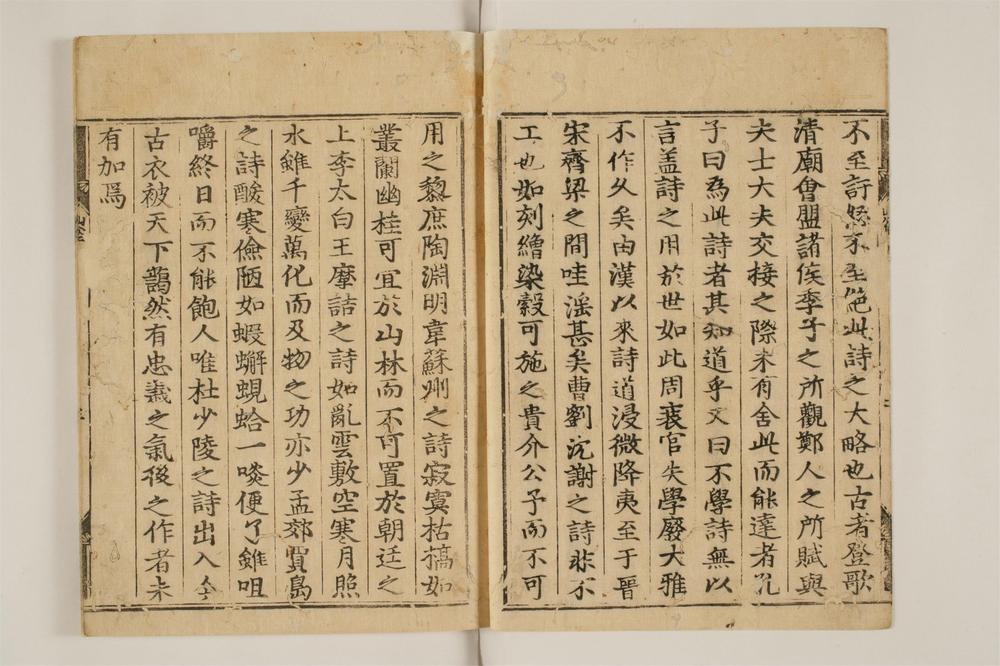 不至訐怒不至絶此詩之大略也古者登歌
清廟會盟諸侯季子之所觀鄭人之所賦與
夫士大夫交接之際未有舍此而能達者孔
子曰爲此詩者其知道乎又曰不學詩無以
言盖詩之用於世如此周衰官失學廢大雅
不作久矣由漢以來詩道浸微降夷至于晉
宋齊梁之間哇滛甚矣曹劉沉謝之詩非不
工也如刻繒染縠可施之貴介公子而不可
用之黎庶陶淵明韋蘇州之詩寂寞枯槁如
叢蘭幽桂可宜於山林而不可置於朝廷之
上李太白王摩詰之詩如亂雲敷空寒月照
水雖千變萬化而及物之功亦少孟郊賈島
之詩酸寒儉陋如蝦蠏蜆蛤一啖便了雖咀
嚼終日而不能飽人唯杜少陵之詩出入今
古衣被天下藹然有忠義之氣後之作者未
有加焉